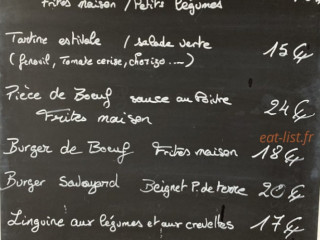 Frites maison / Petits légumes
Tartine estivale / salade verte 15 €
(fenouil, Tomate cerise, chorizo ...)
Pièce de Boeuf sauce au Poivre 24 €
Frites maison
eat-list.fr
Burger de Boeuf Frites maison 18 €
Burger Savoyard Beignet P. de terre 20 €
Linguine aux légumes et aux crevettes 17 €